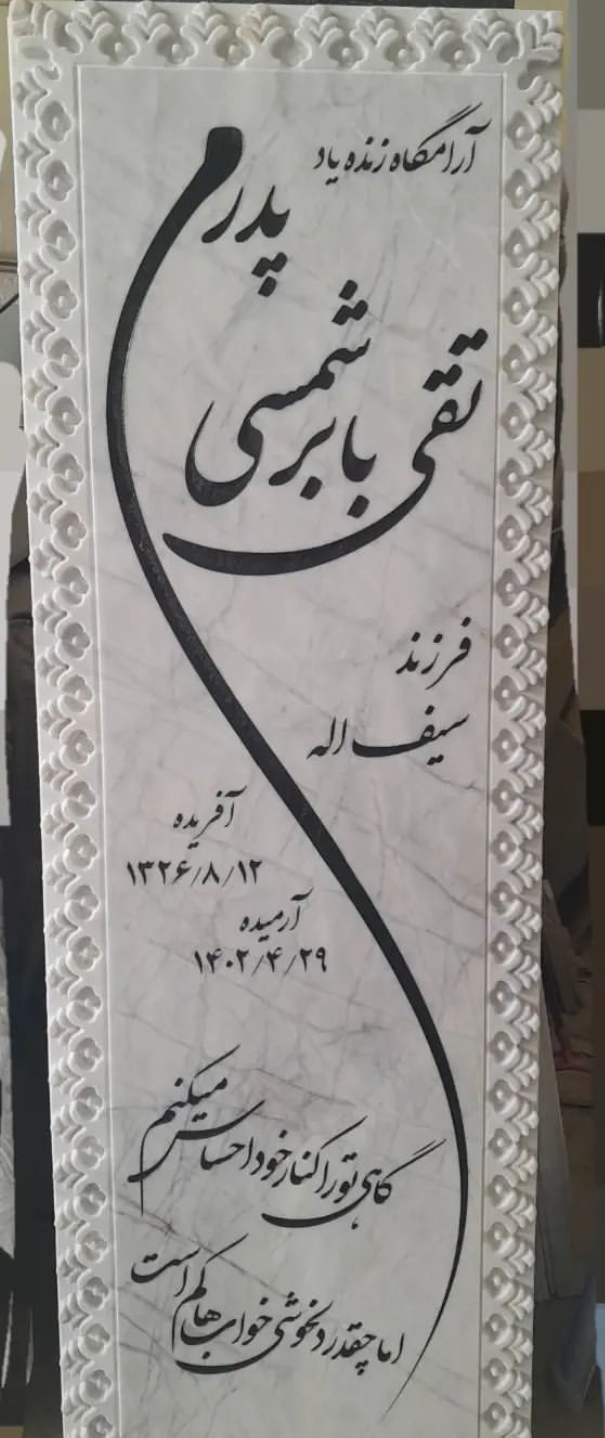 آرامگاه زنده یاد
پدرم
تقی بابرشمسی
فرزند
سیف اله
آفریده
۱۳۲۶/۸/۱۲
آرمیده
۱۴۰۲/۴/۲۹
گاهی تو را کنار خود احساس میکنم
اما چقدر دلخوشی خواب ها کم است